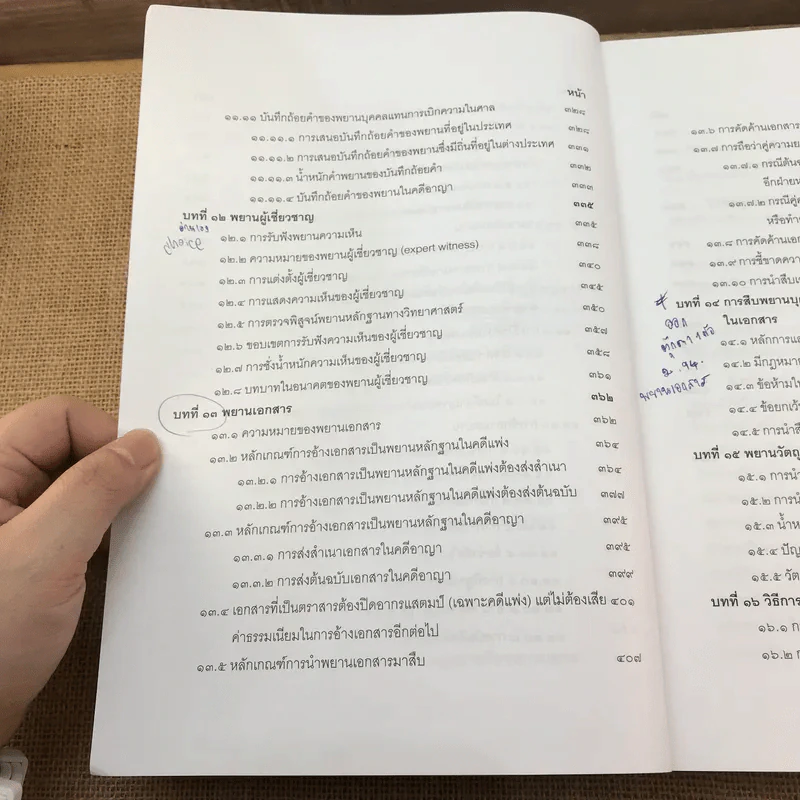 หน้า
๑๑.๑๑ บันทึกถ้อยคำของพยานบุคคลแทนการเบิกความในศาล ๓๒๘
๑๑.๑๑.๑ การเสนอบันทึกถ้อยคำของพยานที่อยู่ในประเทศ ๓๒๘
๑๑.๑๑.๒ การเสนอบันทึกถ้อยคำของพยานซึ่งมีถิ่นที่อยู่ในต่างประเทศ ๓๓๑
๑๑.๑๑.๓ น้ำหนักคำพยานของบันทึกถ้อยคำ ๓๓๒
๑๑.๑๑.๔ บันทึกถ้อยคำของพยานในคดีอาญา ๓๓๓
บทที่ ๑๒ พยานผู้เชี่ยวชาญ ๓๓๕
๑๒.๑ การรับฟังพยานความเห็น ๓๓๕
๑๒.๒ ความหมายของพยานผู้เชี่ยวชาญ (expert witness) ๓๓๘
๑๒.๓ การแต่งตั้งผู้เชี่ยวชาญ ๓๔๐
๑๒.๔ การแสดงความเห็นของผู้เชี่ยวชาญ ๓๔๕
๑๒.๕ การตรวจพิสูจน์พยานหลักฐานทางวิทยาศาสตร์ ๓๕๐
๑๒.๖ ขอบเขตการรับฟังความเห็นของผู้เชี่ยวชาญ ๓๕๗
๑๒.๗ การชั่งน้ำหนักความเห็นของผู้เชี่ยวชาญ ๓๕๘
๑๒.๘ บทบาทในอนาคตของพยานผู้เชี่ยวชาญ ๓๖๑
บทที่ ๑๓ พยานเอกสาร ๓๖๒
๑๓.๑ ความหมายของพยานเอกสาร ๓๖๒
๑๓.๒ หลักเกณฑ์การอ้างเอกสารเป็นพยานหลักฐานในคดีแพ่ง ๓๖๔
๑๓.๒.๑ การอ้างเอกสารเป็นพยานหลักฐานในคดีแพ่งต้องส่งสำเนา ๓๖๔
๑๓.๒.๒ การอ้างเอกสารเป็นพยานหลักฐานในคดีแพ่งต้องส่งต้นฉบับ ๓๗๗
๑๓.๓ หลักเกณฑ์การอ้างเอกสารเป็นพยานหลักฐานในคดีอาญา ๓๙๕
๑๓.๓.๑ การส่งสำเนาเอกสารในคดีอาญา ๓๙๕
๑๓.๓.๒ การส่งต้นฉบับเอกสารในคดีอาญา ๓๙๙
๑๓.๔ เอกสารที่เป็นตราสารต้องปิดอากรแสตมป์ (เฉพาะคดีแพ่ง) แต่ไม่ต้องเสีย ๔๐๑
ค่าธรรมเนียมในการอ้างเอกสารอีกต่อไป
๑๓.๕ หลักเกณฑ์การนำพยานเอกสารมาสืบ ๔๐๗
๑๓.๖ การคัดค้านเอกสาร
๑๓.๗ การถือว่าคู่ความย
๑๓.๗.๑ กรณีต้นฉ
อีกฝ่ายห
๑๓.๗.๒ กรณีคู่ค
หรือทำ
๑๓.๘ การคัดค้านเอก
๑๓.๙ การชี้ขาดความ
๑๓.๑๐ การนำสืบเ
บทที่ ๑๔ การสืบพยานบุ
ในเอกสาร
๑๔.๑ หลักการแล
๑๔.๒ มีกฎหมาย
๑๔.๓ ข้อห้ามใน
๑๔.๔ ข้อยกเว้น
๑๔.๕ การนำสื
พยานเอกสาร
บทที่ ๑๕ พยานวัตถุ
๑๕.๑ การนำ
๑๕.๒ การน
๑๕.๓ น้ำห
๑๕.๔ ปัญ
๑๕.๕ วัต
บทที่ ๑๖ วิธีการ
๑๖.๑ ก
๑๖.๒ ก